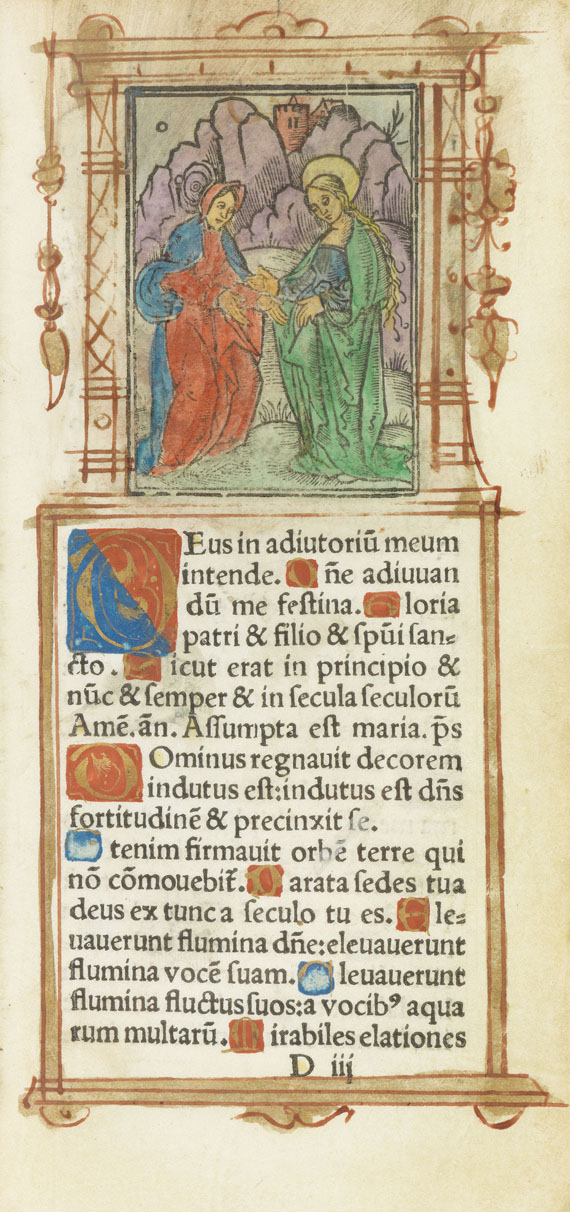 DEus in adiutoriū meum
intende. Dñe adiuuan
dū me feſtina. Gloria
patri & filio & ſpūi ſan=
cto. Sicut erat in principio &
nūc & ſemper & in ſecula ſeculorū
Amē. añ. Aſſumpta eſt maria. p̄s
DOminus regnauit decorem
indutus eſt: indutus eſt dñs
fortitudinē & precinxit ſe.
Etenim firmauit orbē terre qui
nō cōmouebit᷑. Parata ſedes tua
deus ex tunc a ſeculo tu es. Ele=
uauerunt flumina dñe: eleuauerunt
flumina vocē ſuam. Eleuauerunt
flumina fluctus ſuos: a vocibꝰ aqua
rum multarū. Mirabiles elationes
D iij